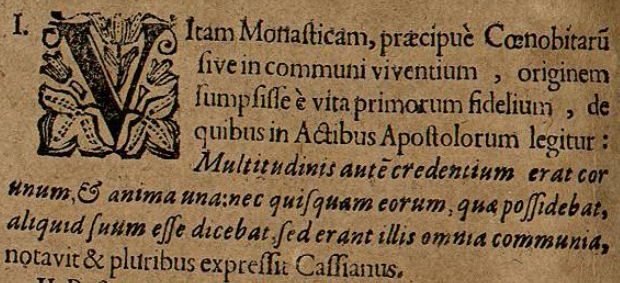 I. VItam Monasticam, præcipuè Cœnobitarũ
ſive in communi viventium , originem
ſumpſiſſe è vita primorum fidelium , de
quibus in Actibus Apoſtolorum legitur :
Multitudinis autẽ credentium erat cor
unum, & anima una: nec quiſquam eorum, quæ poſſidebat,
aliquid ſuum eſſe dicebat, ſed erant illis omnia communia,
notavit & pluribus expreſſit Caſſianus.